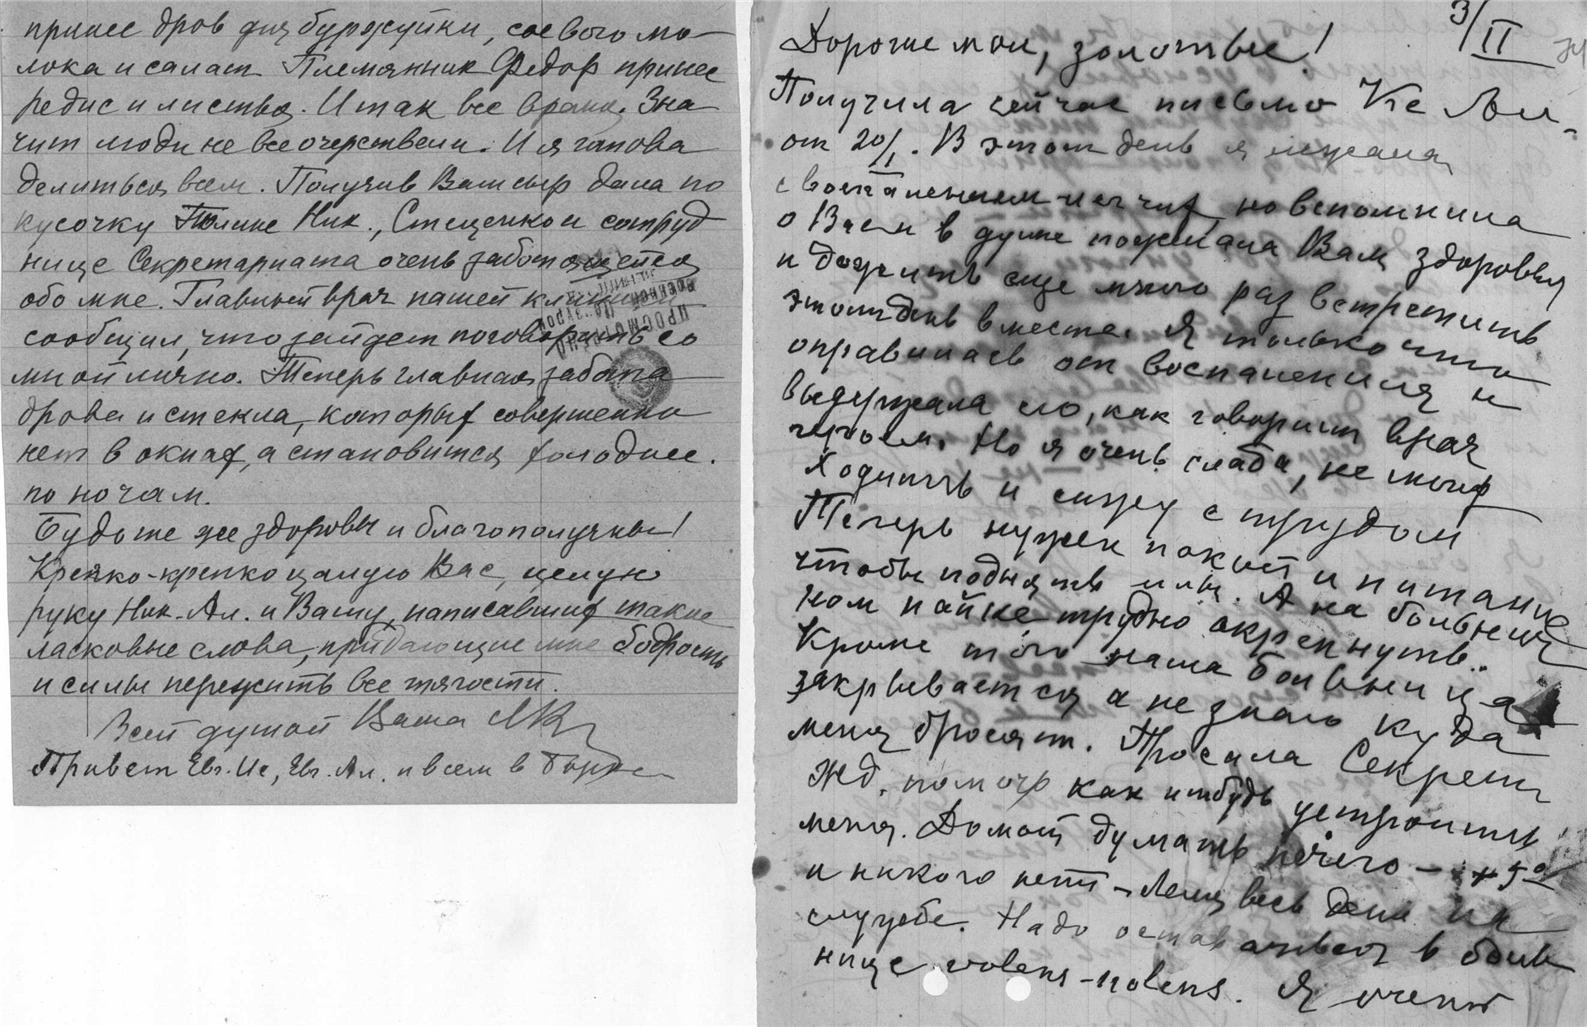 принес дров для буржуйки, соевого мо-
лока и салат. Племянник Федор принес
редис и листья. Итак все враки. Зна
чит люди не все очерствели. И я готова
делиться всем. Получив Ваш сыр дала по
кусочку Полине Ник., Стеценко и сотруд
нице Секретариата очень заботящейся
обо мне. Главный врач нашей
сообщил, что зайдет поговорить со
мной лично. Теперь главная забота
дрова и стекла, которых совершенно
нет в окнах, а становится холоднее.
по ночам.
Будьте же здоровы и благополучны!
Крепко-крепко целую Вас, целую
руку Ник. Ал. и Вашу, написавших такие
ласковые слова, придающие мне бодрость
и силы пережить все тягости.
Всей душой Ваша
Привет Евг. Ис, Евг. Ал. и всем в
ПРОСМОТРЕНО
3/II
Дорогие мои, золотые!
Получила сейчас письмо
от 20/I. В этот день я лежала
с воспалением легких, но вспомнила
о Вас и в душе пожелала Вам здоровья
и дожить еще много раз встретить
этот день вместе. Я только что
оправилась от воспаления и
выдержала его, как говорит врач
героем. Но я очень слаба, не могу
ходить и сижу с трудом
Теперь нужен покой и питание
чтобы поднять силы. А на больнич
ном пайке трудно окрепнуть.
Кроме того наша больница
закрывается и не знаю куда
меня бросят. Просила Секрет.
помочь как нибудь устроить
меня. Домой думать нечего – +5°
и никого нет – Леля весь день на
службе. Надо оставаться в боль
нице volens-nolens. Я очень